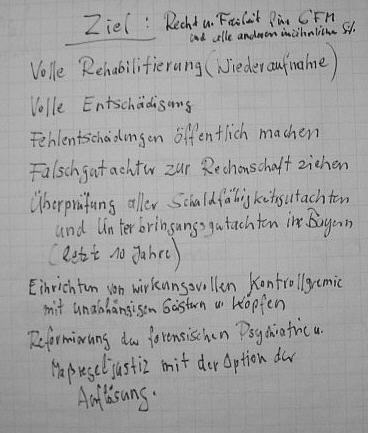 Ziel: Recht u. Freiheit für GFM
und alle anderen unschuldigen
Volle Rehabilitierung (Wiederaufnahme)
Volle Entschädigung
Fehlentscheidungen öffentlich machen
Falschgutachter zur Rechenschaft ziehen
Überprüfung aller Schuldfähigkeitsgutachten
und Unterbringungsgutachten in Bayern
(letzte 10 Jahre)
Einrichten von wirkungsvollen Kontrollgremien
mit unabhängigen Geistern u. Köpfen
Reformierung der forensischen Psychiatrie u.
Maßregeljustiz mit der Option der
Auflösung.